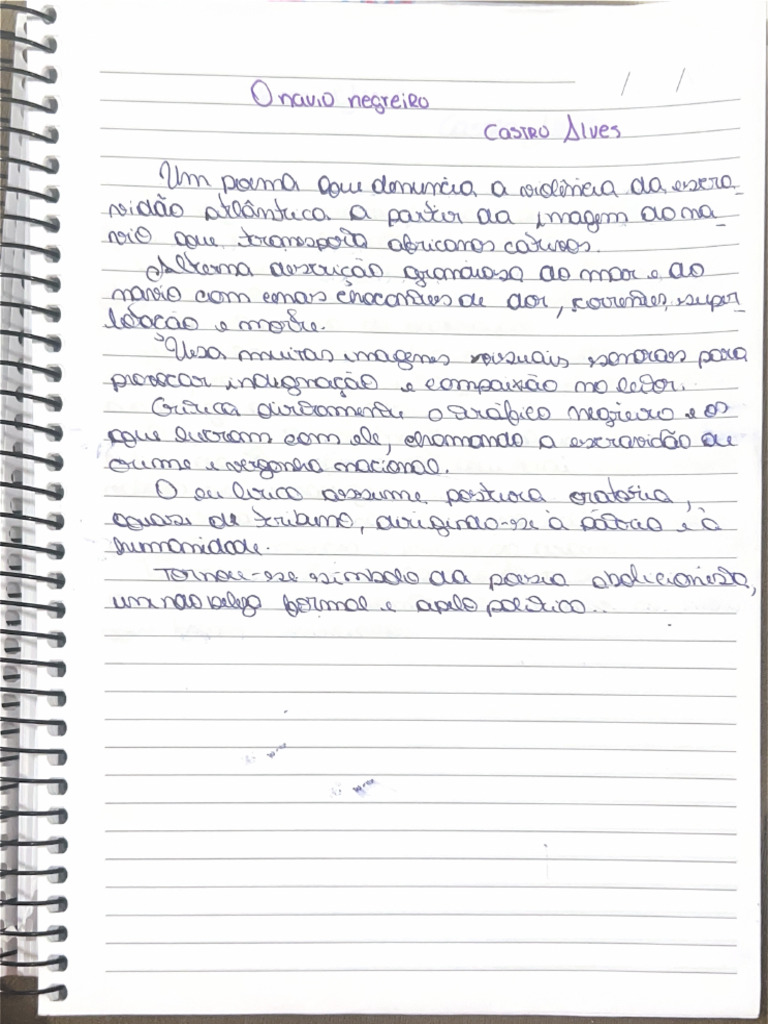 O navio negreiro
Castro Alves
Um poema que denuncia a violência da escra-
vidão atlântica a partir da imagem do na-
vio que transporta africanos cativos.
Alterna descrição grandiosa do mar e do
navio com cenas chocantes de dor, correntes, super-
lotação e morte.
Usa muitas imagens visuais sonoras para
provocar indignação e compaixão no leitor.
Critica diretamente o tráfico negreiro e os
que lucram com ele, chamando a escravidão de
crime e vergonha nacional.
O eu lírico assume postura oratória,
quase de tribuno, dirigindo-se à pátria e à
humanidade.
Tornou-se símbolo da poesia abolicionista,
unindo beleza formal e apelo político..